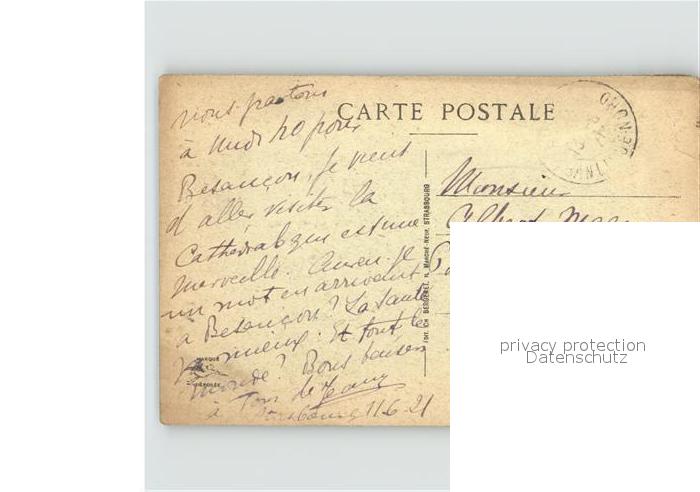 CARTE POSTALE
nous partons
à midi 20 pour
Besançon, je vient
d'aller visiter la
Cathédrale qui est une
merveille. Aurai-je
un mot en arrivant
a Besançon? La santé
mieux. Et tout le
monde? Bons baisers
à Tous de Jeanne
Strasbourg 11-6-21
Monsieur
Albert
STRASBOURG
MARQUE
DÉPOSÉE
privacy protection
Datenschutz